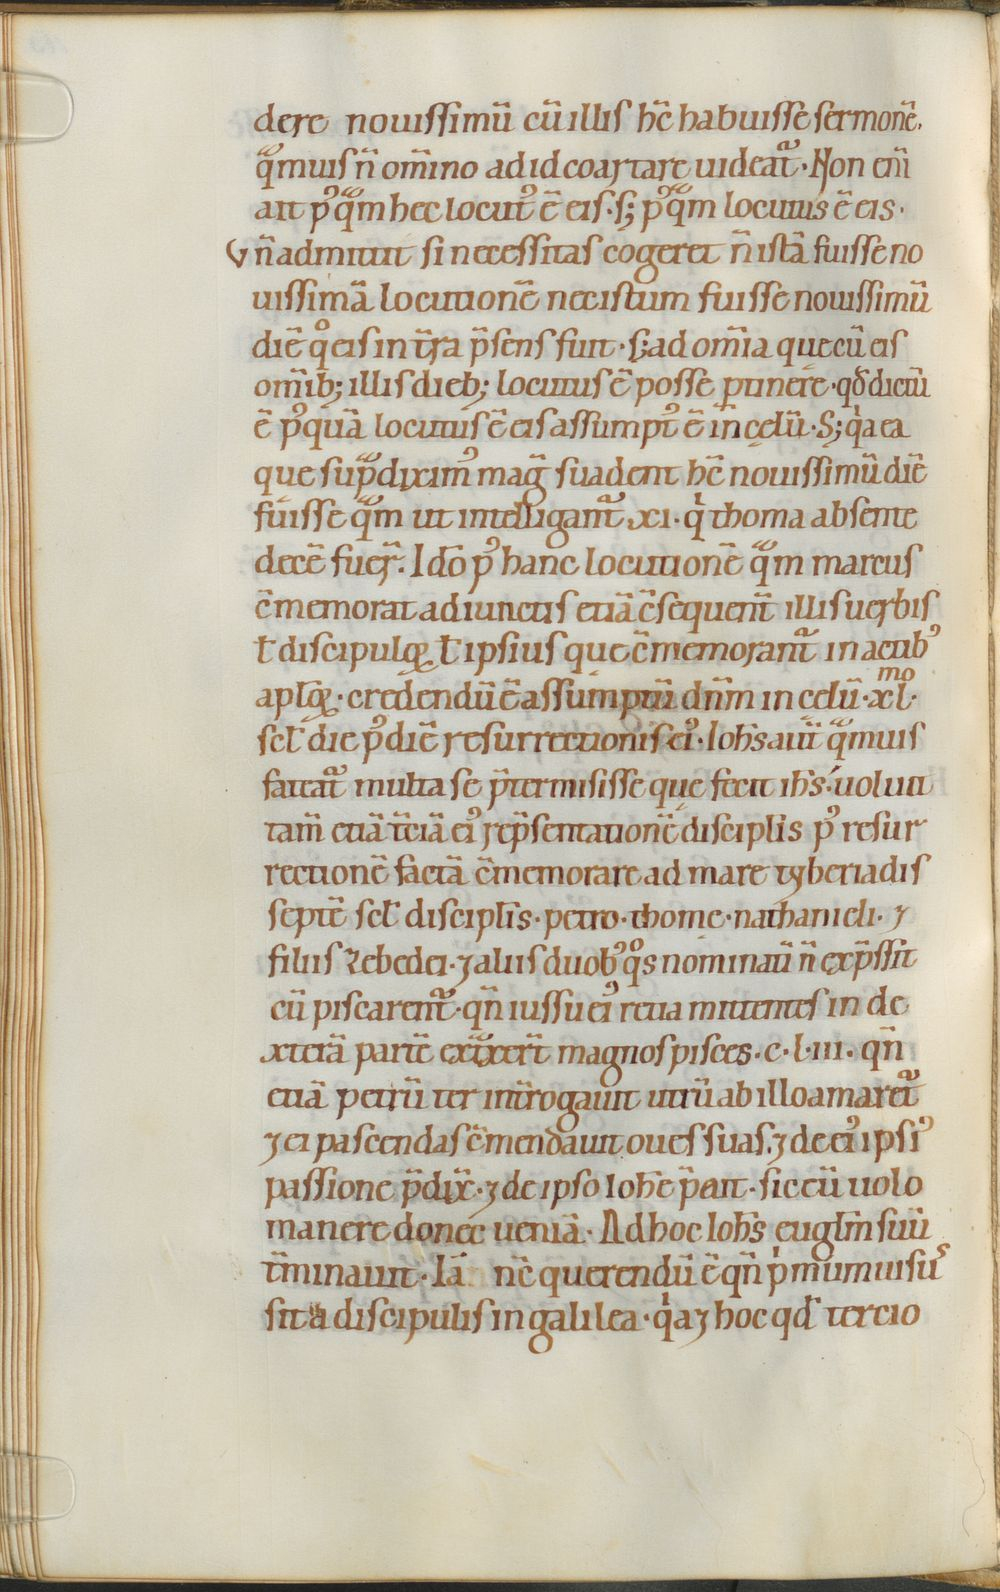 dere nouissimū cū illis hc̄ habuisse sermonē.
qͣmuis n̄ om̄ino ad id coartare uideat᷑. Non eni̅
ait pꝰqͣm hec locutꝰ ē eis. s; pꝰqͣm locutus ē eis.
Vn̄ admittit si necessitas cogeret n̄ istā fuisse no
uissimā locutionē nec istum fuisse nouissimū
diē qͦ eis in t̄ra p̄sens fuit. s; ad om̄ia que cū eis
om̄ib; illis dieb; locutus ē posse ꝑtinere. qđ dictū
ē pꝰquā locutus ē eis assumptꝰ ē in celū. S; qͥa ea
que sup̄diximꝰ mag̅ suadent hc̄ nouissimū diē
fuisse qͣm ut intelligant᷑ .xi. qͥ thoma absente
decē fuer̄. Idō pꝰ hanc locutionē qͣm marcus
c̄memorat adiunctis etiā c̄sequent᷑ illis uerbis
ł discipuloꝝ ł ipsius que c̄memorant᷑ in actibꝰ
apl̄oꝝ. credendū ē assumptū dn̄m in celū. xl.mo
scł die pꝰ diē resurrectionis eiꝰ. Ioh̄s aut̄ qͣmuis
fateat᷑ multa se p̄termisisse que fecit ih̄s. uoluit
tam̄ etiā t̄ciā eiꝰ rep̄sentationē disciplis pꝰ resur
rectionē factā c̄memorare ad mare tyberiadis
septē scł discipl̄is. petro. thome. nathanieli. ⁊
filiis Zebedei. ⁊ aliis duobꝰ qͦs nominatī n̄ exp̄ssit
cū piscarent᷑. qn̄ iussu eiꝰ retia mittentes in de
xterā partē extͣxer̄t magnos pisces .c.l.iii. qn̄
etiā petrū ter int̄rogauit utrū ab illo amaret᷑
⁊ ei pascendas c̄mendauit oues suas. ⁊ de eiꝰ ipsiꝰ
passione p̄dix̄. ⁊ de ipso Ioh̄e p̄ait. sic eū uolo
manere donec ueniā. Ad hoc Ioh̄s eugl̄m suū
t̄minauit. Iā nc̄ querendū ē qn̄ pͥmum uisus
sit a discipulis in galilea. qͥa ⁊ hoc qđ tercio